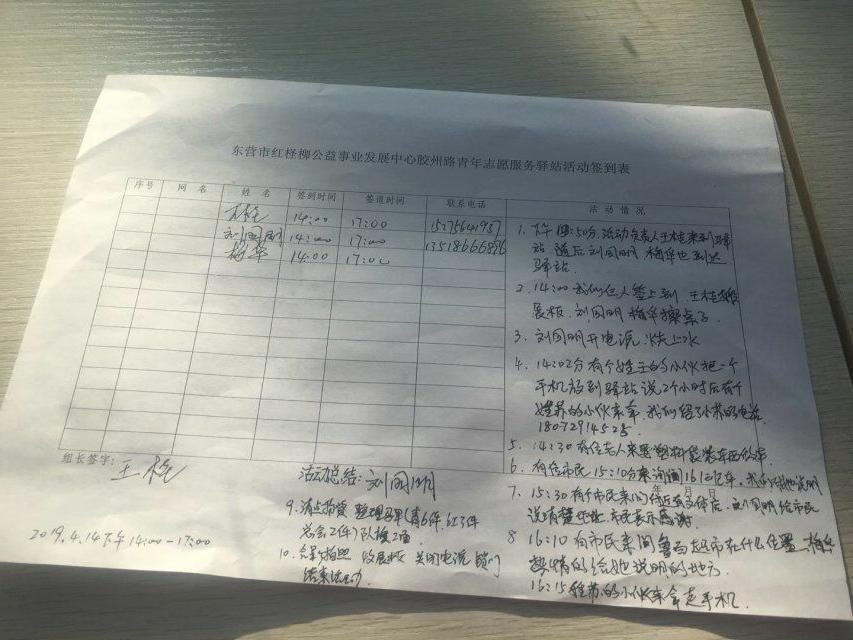 东营市红柽柳公益事业发展中心胶州路青年志愿服务驿站活动签到表
序号 网名 姓名 签到时间 签退时间 联系电话 活动情况
王柽 14:00 17:00
刘国明 14:00 17:00
梅华 14:00 17:00
1. 下午 50分,活动负责人王柽来到驿
站 随后刘国明 梅华也到达
驿站.
2. 14:00 我们 人签上到. 王柽
展板. 刘国明 梅华擦桌子
3. 刘国明开电源. 烧上水
4. 14:02分有个姓王的小伙把一个
手机放到驿站说2个小时后有个
姓苏的小伙来拿. 我们 小苏的电话
18072914525.
5. 14:30有位老人来 塑料袋装东西
6. 有位市民15:10分来询问16 车.
年 月 日
7. 15:30有个市民来问附近 店. 刘国明给市民
说清楚 市民表示感谢.
8 16:10有市民来问 超市在什么位置 梅华
热情的给她说明的地方.
16:15 姓苏的小伙来拿走手机.
组长签字: 王柽
活动总结: 刘国明
9. 清点 整理马甲(青6件. 红3件
总会2件) 队旗2面
10. 合影拍照 收展板 关闭电源 锁门
结束活动.
2019.4.14下午14:00-17:00